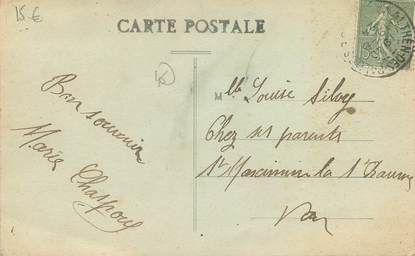 15 €
CARTE POSTALE
Mlle Louise Silvy
Chez ses parents
St Maximin la Ste Baume
Var
Bon souvenir
Marie